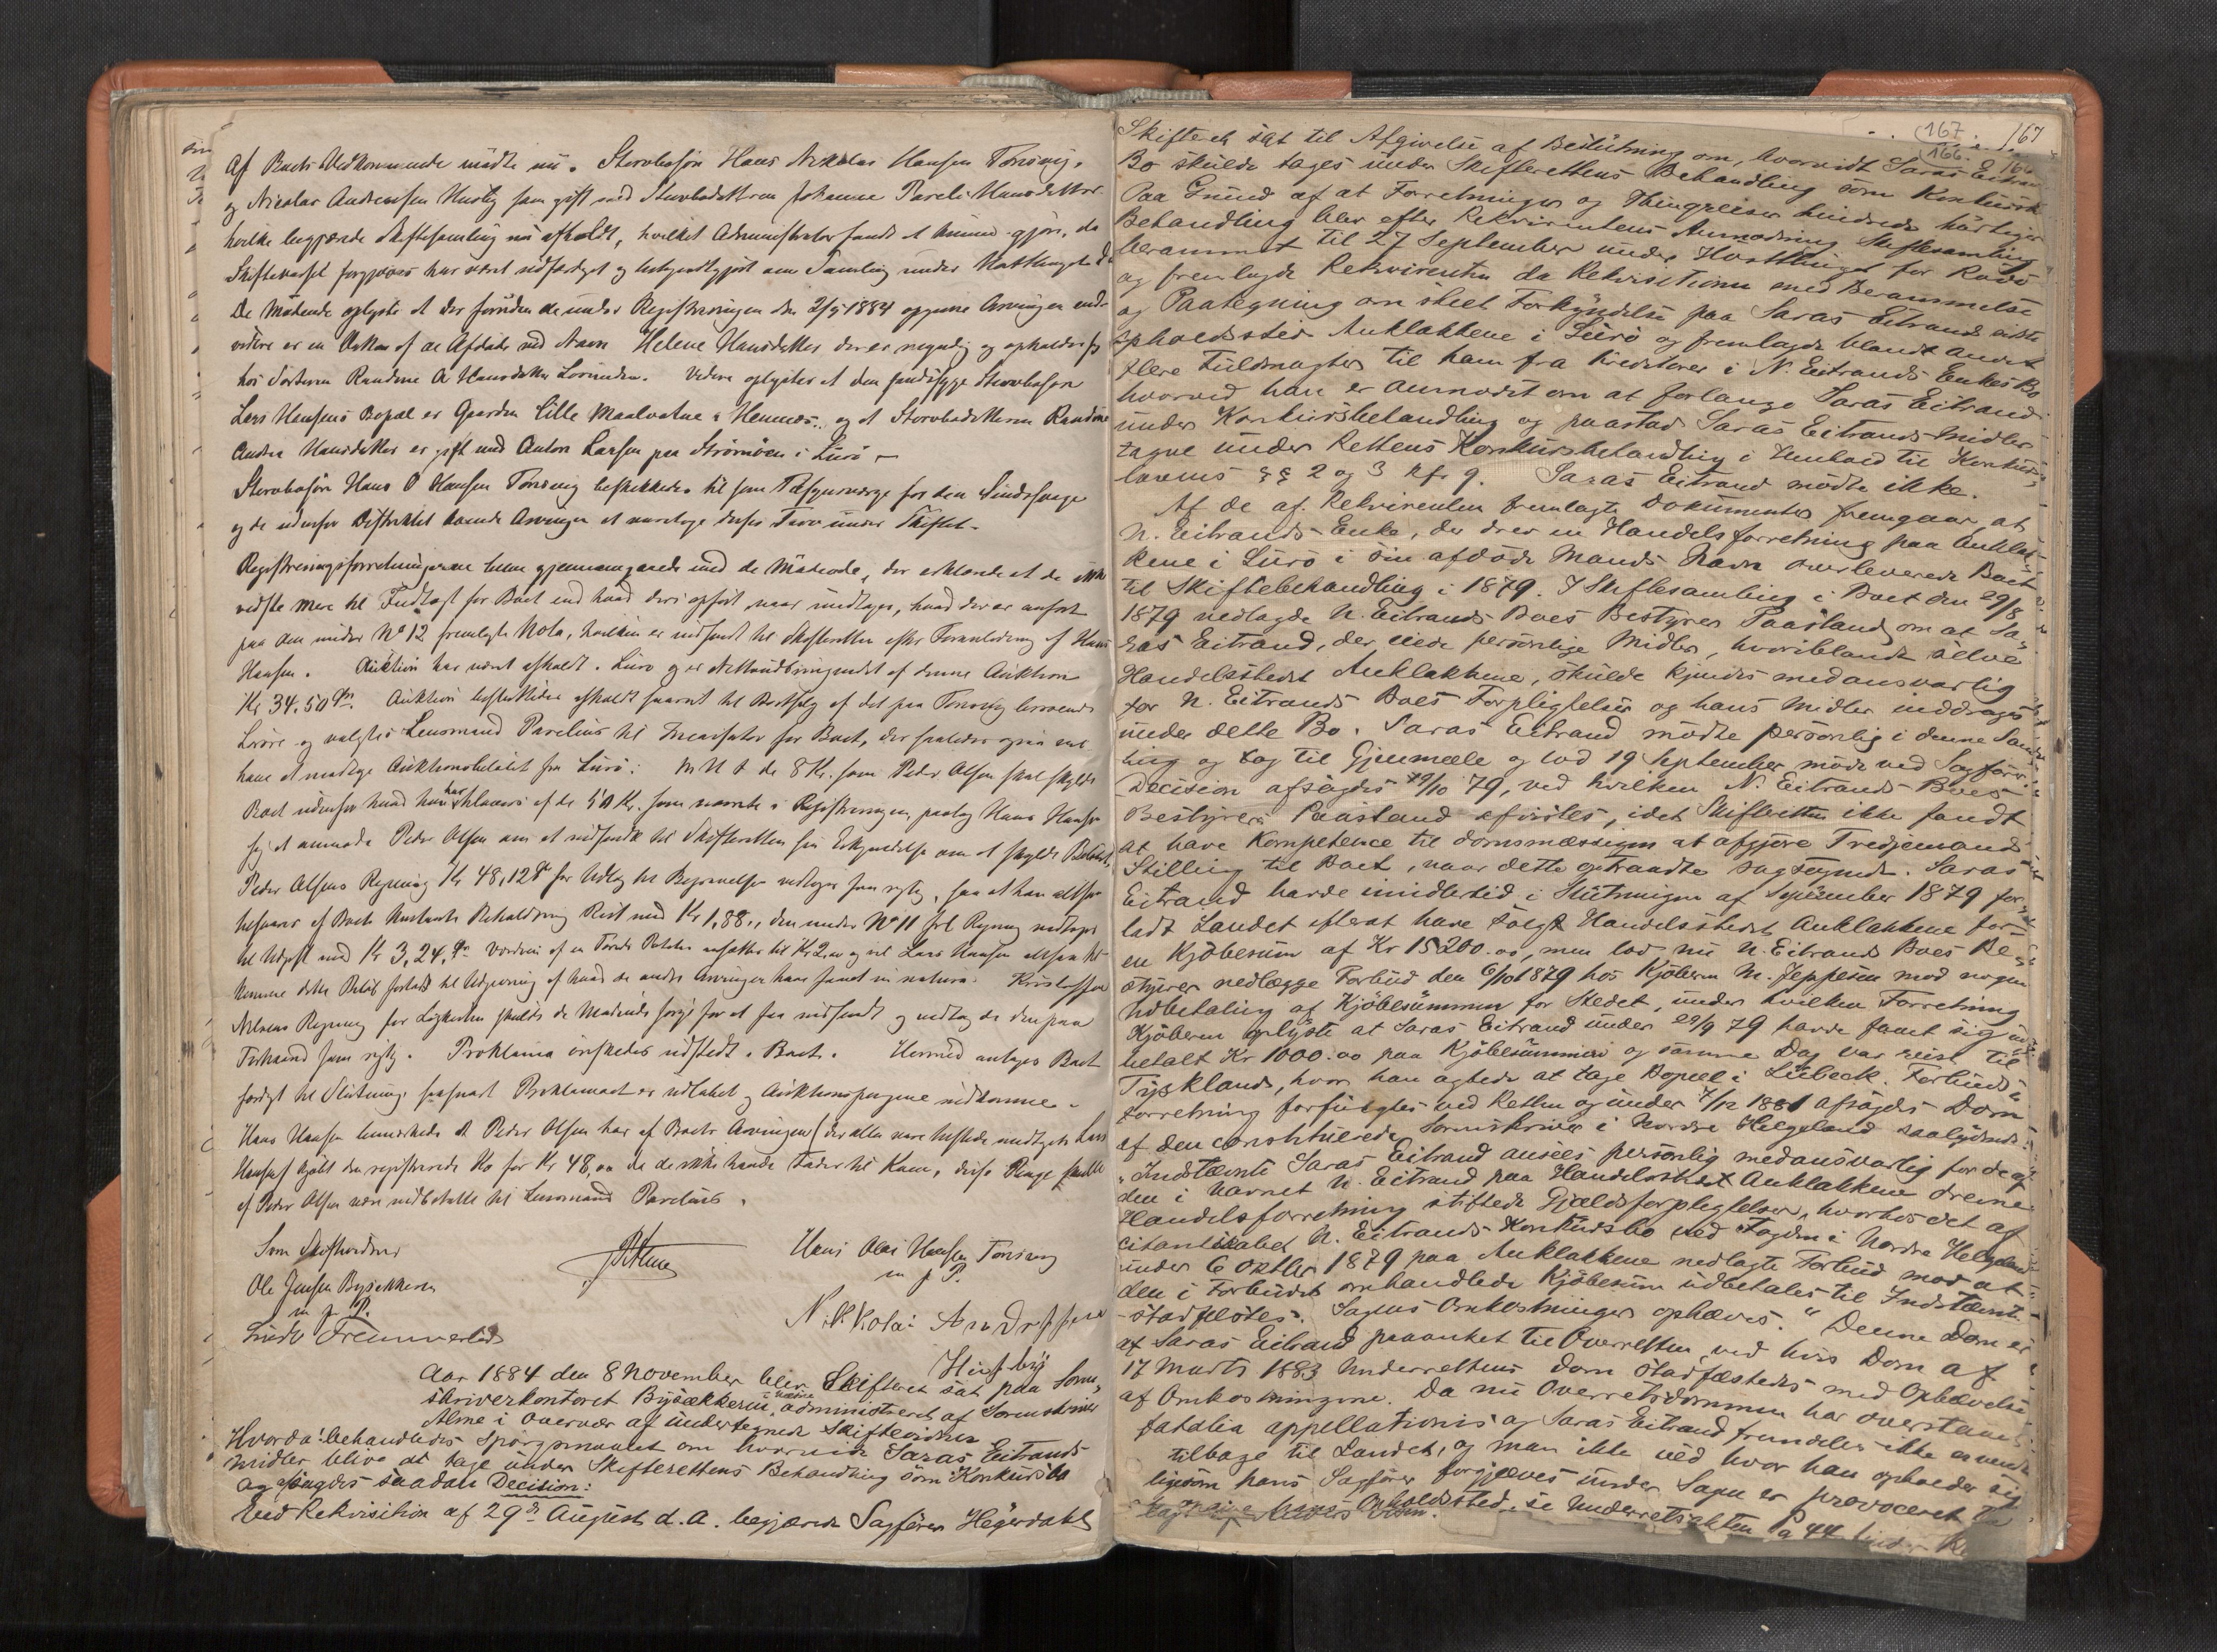 Af Boets Vedkommende mødte nu. Stervbosøn Hans Nikolai Hansen Tonsvig.
og Nicolai Andreassen Husby som gift med Stervbodatteren Johanne Pareli Hansdatter
hvilke begjærede Skiftesamling nu afholdt, hvilket Administrator fandt at kunne gjøre, da
Skiftevarsel forgjæves har været udfærdiget og bekjendtgjort om Samling under Høstthinget
De Mødende oplyste at der foruden de under Registreringen den 2/5 1884 opgivne Arvinger end-
videre er en Datter af de Afdøde ved Navn Helene Hansdatter der er myndig og opholder sig
hos Søsteren Randine A Hansdatter Lovunden. Videre oplystes at den sindssyge Stervbosøn
Lars Hansens Bopæl er Gaarden lille Maalvatne i Hemnes, og at Stervbodatteren Randine
Andrea Hansdatter er gift med Anton Larsen paa Strømøen i Lurø –
Stervbosøn Hans O Hansen Tonsvig beskikkedes til som Tilsynsværge for den Sindssyge
og de udenfor Distriktet boende Arvinger at varetage deres Tarv under Skiftet.
Registreringsforretningerne blev gjennemgaaede med de Mødende, der erklærede at de ikke
vidste mere til Indtægt for Boet end hvad deri opført, naar undtages, hvad der er anført
paa den under No 12 fremlagte Nota, hvilken er indsendt til Skifteretten efter Foranledning af Hans
Hansen. Auktion har været afholdt i Lurø og er Nettoudbringendet af denne Auktion
Kr 34.50 Øre. Auktion besluttedes afholdt snarest til Bortsalg af det paa Tonsvig beroende
Løsøre og valgtes Lensmand Parelius til Incassator for Boet, der saaledes ogsaa vil
have at modtage Auktionsbeløbet fra Lurø. M H t de 8 Kr. som Peder Olsen skal skylde
Boet udenfor hvad han har tilsvars af de 50 Kr. som nævnte i Registreringen paatog Hans Hansen
sig at anmode Peder Olsen om at indsende til Skifteretten sin Erkjendelse om at skylde Beløbet.
Peder Olsens Regning Kr 48,12 Ør for Udlæg til Begravelse vedtoges som rigtig, saa at han altsaa
tilsvarer af Boets Kontante Beholdning Rest med Kr 1,88., den under No 11 frl Regning vedtoges
til Udgift med Kr 3,24, Ør. Værdien af en Tønde Poteter ansattes til Kr 2,00 og vil Lars Hansen altsaa til-
komme dette Beløb forlods til Udjevning af hvad de andre Arvinger have faaet in natura. Kristoffer
Nilsens Regning for Ligkisten skulde de Mødende sørge for at faa indsendt og vedtog de den paa
Forhaand som rigtig. Proklama ønskedes udstedt i Boet. Hermed antages Boet
færdigt til Slutning saasnart Proklamaet er udløbet og Auktionspengene indkomne.
Hans Hansen bemærkede at Peder Olsen har af Boets Arvinger (der alle vare tilstede undtagen Lars
Hansen) kjøbt den registrerede Ko for Kr 48,00 da de ikke havde Foder til Koen, disse Penge skulle
af Peder Olsen være indbetalte til Lensmand Parelius.
Som Skiftevidner
Ole Jensen Bysækkeren
m p P.
Alme
Hans Olai Hansen Tonsvig
m p P.
Nikkolai Andressen
Husby
Aar 1884 den 8 November blev Skifteret sat paa Soren-
skriverkontoret Bysækkeren i Næsne, administreret af Sorenskriver
Alme i Overvær af undertegnede Skiftevidner
Hvorda: behandledes Spørgsmaalet om hvorvidt Saras Eitrands
Midler blive at tage under Skifterettens Behandling som Konkursbo
og afsagdes saadan Decision:
Ved Rekvisition af 29de August d.A. begjærede Sagfører Hegerdahl
167. 167
166. 166
Skifteret sat til Afgivelse af Beslutning om, hvorvidt Saras Eitrands
Bo skulde tages under Skifterettens Behandling som Konkursbo
Paa Grund af at Forretninger og Thingreiser hindrede hurtigere
Behandling blev efter Rekvirentens Anmodning Skiftesamling
berammet til 27 September under Høstthinget for Rødø
og fremlagde Rekvirenten da Rekvisitionen med Berammelse
og Paategning om skeet Forkyndelse paa Saras Eitrands sidste
Opholdssted Auklakkene i Lurø og fremlagde blandt Andet
flere Fuldmagter til ham fra Kreditorer i N. Eitrands Enkes Bo
hvorved han er anmodet om at forlange Saras Eitrand
under Konkursbehandling og paastod Saras Eitrands Midler
tagne under Rettens Konkursbehandling i Henhold til Konkurs-
lovens §§ 2 og 3 Kfr 9. Saras Eitrand mødte ikke.
Af de af Rekvirenten fremlagte Dokumenter fremgaar, at
N. Eitrands Enke, der drev en Handelsforretning paa Auklak-
kene i Lurø i sin afdøde Mands Navn overleverede Boet
til Skiftebehandling i 1879. I Skiftesamling i Boet den 29/8
1879 nedlagde N. Eitrands Boes Bestyrer Paastand om at Sa-
ras Eitrand, der eiede personlige Midler, hvoriblandt selve
Handelsstedet Auklakkene, skulde kjendes medansvarlig
for N. Eitrands Boes Forpligtelser og hans Midler inddrages
under dette Bo. Saras Eitrand mødte personlig i denne Sam-
ling og tog til Gjenmæle og lod 19 September møde ved Sagfører.
Decision afsagdes 29/10 79, ved hvilken N. Eitrands Boes
Bestyrers Paastand afvistes, idet Skifteretten ikke fandt
at have Kompetence til domsmæssigen at afgjøre Tredjemands
Stilling til Boet, naar dette optraadte sagsøgende. Saras
Eitrand havde imidlertid i Slutningen af September 1879 for-
ladt Landet efterat have solgt Handelsstedet Auklakkene for
en Kjøbesum af Kr 15200.00, men lod nu N. Eitrands Boes Be-
styrer nedlægge Forbud den 6/10 1879 hos Kjøberen M. Jeppesen mod nogen
Udbetaling af Kjøbesummen for Stedet, under hvilken Forretning
Kjøberen oplyste at Saras Eitrand under 29/9 79 havde faaet sig ud-
betalt Kr 1000.00 paa Kjøbesummen og samme Dag var reist til
Tyskland, hvor han agtede at tage Bopæl i Lübeck. Forbuds-
forretning forfulgtes ved Retten og under 7/12 1881 afsagdes Dom
af den constituerede Sorenskriver i Nordre Helgeland saalydende:
"Indstævnte Saras Eitrand ansees personlig medansvarlig for de af
den i Navnet N. Eitrand paa Handelsstedet Auklakkene drevne
Handelsforretning stiftede Gjældsforpligtelser, hvorhos det af
Citantskabet N. Eitrands Konkursbo ved Fogden i Nordre Helgeland
under 6 Oktbr 1879 paa Auklakkene nedlagte Forbud mod at
den i Forbudet omhandlede Kjøbesum udbetales til Indstævnte
stadfæstes. Sagens Omkostninger ophæves." Denne Dom er
af Saras Eitrand paaanket til Overretten, ved hvis Dom af
17 Marts 1883 Underrettens Dom stadfæstedes med Ophævelse
af Omkostningerne. Da nu Overretsdommen har overstaaet
fatalia appellationis og Saras Eitrand fremdeles ikke er vendt
tilbage til Landet, og man ikke ved hvor han opholder sig
ligesom hans Sagfører forgjæves under Sagen er provoceret til
Opholdssted, se Underretsakten Pag 44